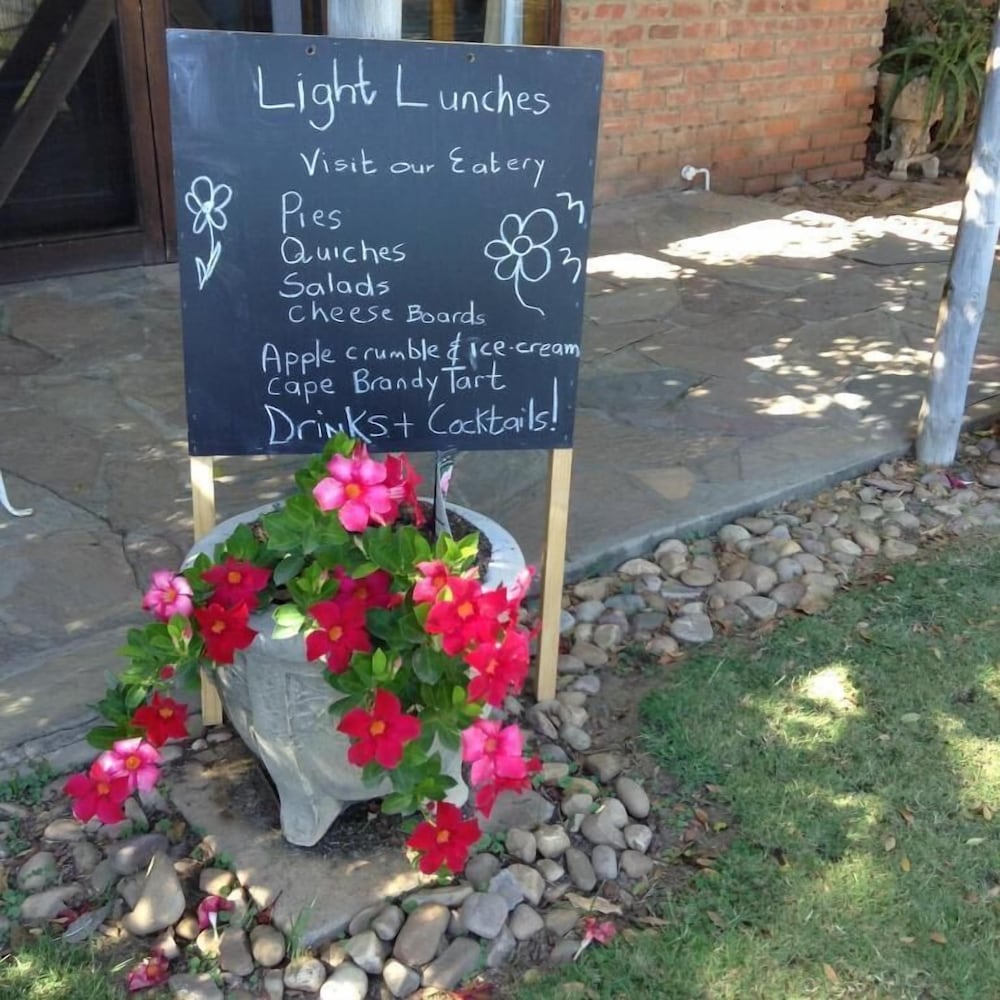 Light Lunches
Visit our Eatery
Pies
Quiches
Salads
cheese Boards
Apple crumble & ice-cream
cape Brandy Tart
Drinks + Cocktails!